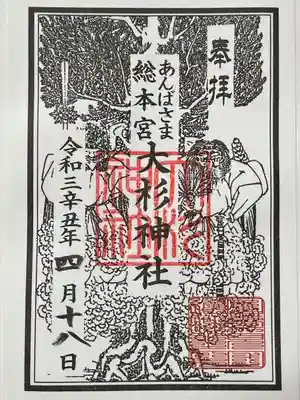 奉拝
あんばさま
総本宮
大杉神社
令和三辛丑年四月十八日